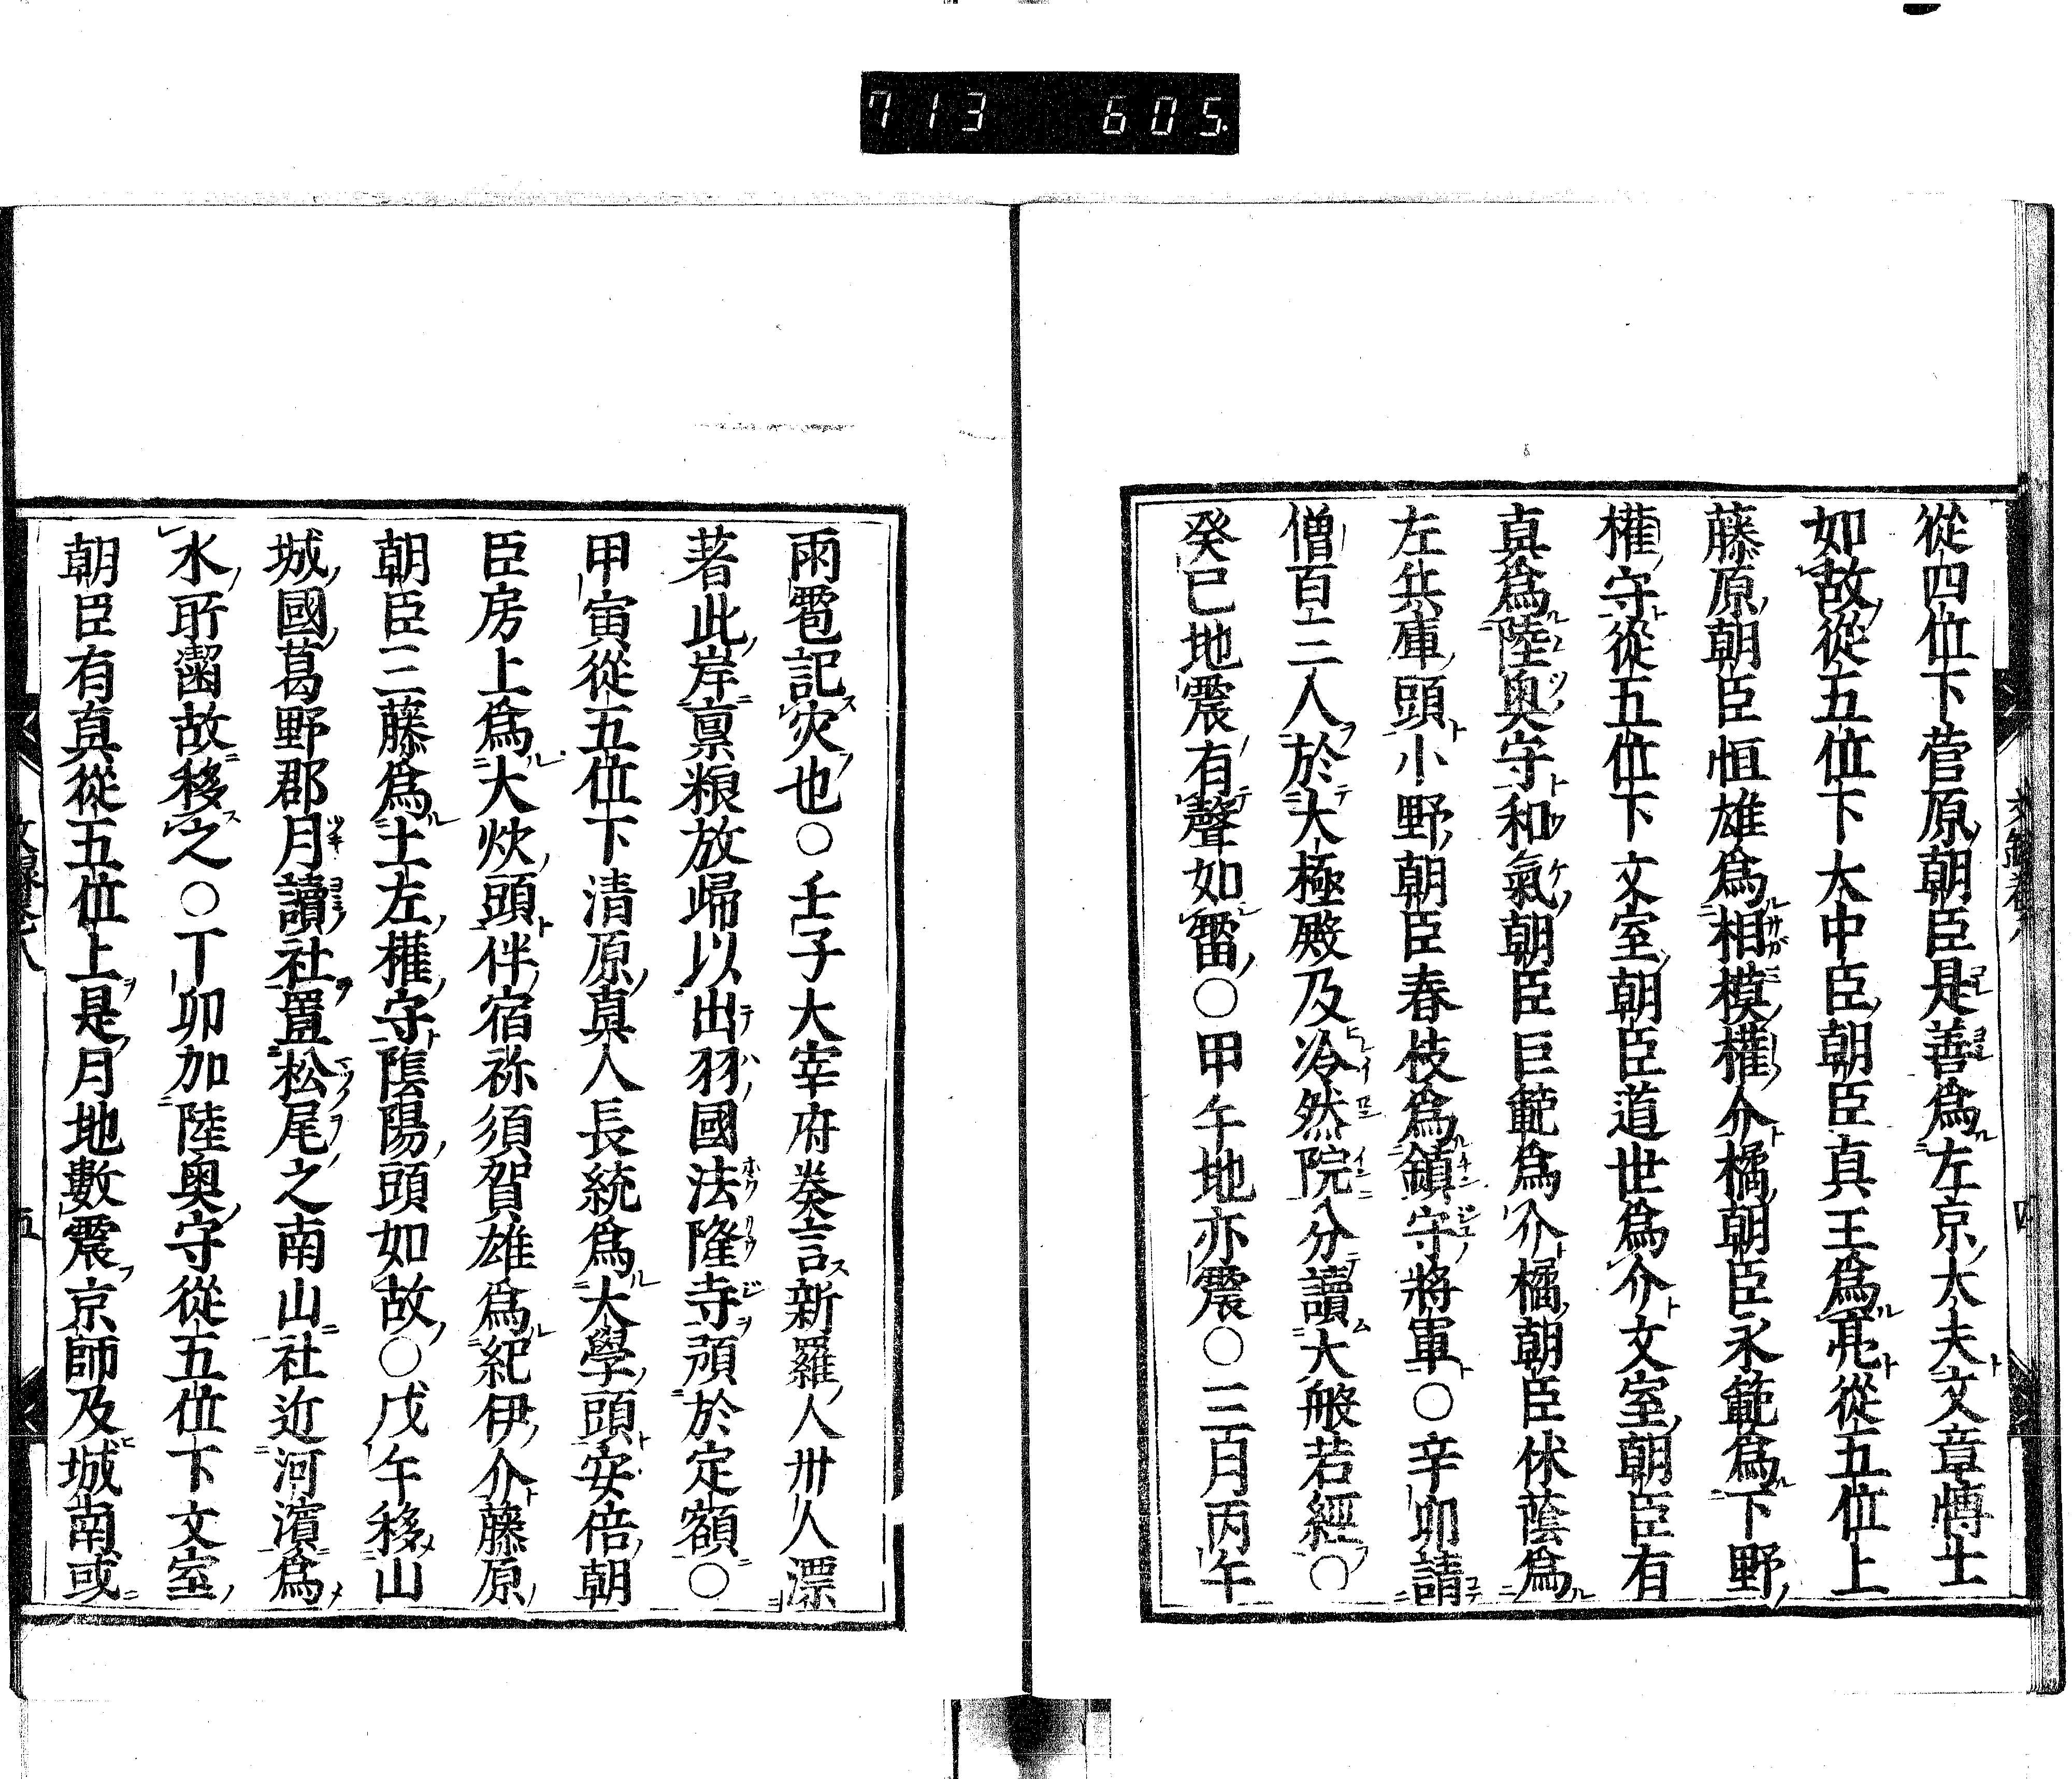 713 605
從四位下菅原朝臣是善爲左京大夫文章博士
如故從五位下大中臣朝臣真王爲亮從五位上
藤原朝臣恒雄爲相模權介橘朝臣永範爲下野
權守從五位下文室朝臣道世爲介文室朝臣有
真爲陸奥守和氣朝臣巨範爲介橘朝臣休蔭爲
左兵庫頭小野朝臣春枝爲鎮守將軍○辛卯請
僧百三人於大極殿及冷然院分讀大般若經○
癸巳地震有聲如雷○甲午地亦震○三月丙午
雨雹記灾也○壬子大宰府奏言新羅人卅人漂
著此岸禀粮放歸以出羽國法隆寺預於定額○
甲寅從五位下清原真人長統爲大學頭安倍朝
臣房上爲大炊頭伴宿祢須賀雄爲紀伊介藤原
朝臣三藤爲土左權守陰陽頭如故○戊午移山
城國葛野郡月讀社置松尾之南山社近河濱爲
水所齧故移之○丁卯加陸奥守從五位下文室
朝臣有真從五位上是月地數震京師及城南或